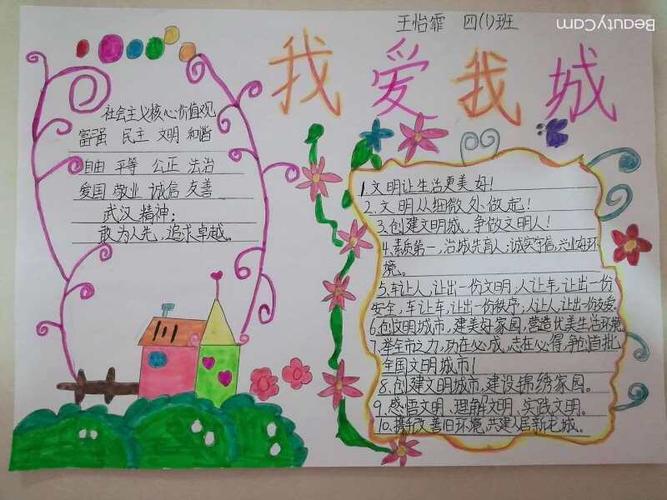 BeautyCam
王怡霏 四(1)班
我爱我城
社会主义核心价值观
富强 民主 文明 和谐
自由 平等 公正 法治
爱国 敬业 诚信 友善
武汉精神:
敢为人先,追求卓越。
1.文明让生活更美好!
2.文明从细微处做起!
3.创建文明城,争做文明人!
4.素质第一,治城先育人;诚实守信,兴业好环
境。
5.车让人,让出一份文明,人让车,让出一份
安全,车让车,让出一份秩序,人让人,让出一份友爱。
6.创文明城市,建美好家园,营造优美生活环境
7.举全市之力,功在必成,志在必得,争创首批
全国文明城市!
8.创建文明城市,建设锦绣家园。
9.感受文明,理解文明,实践文明。
10.改善旧环境,共建人居新花城。